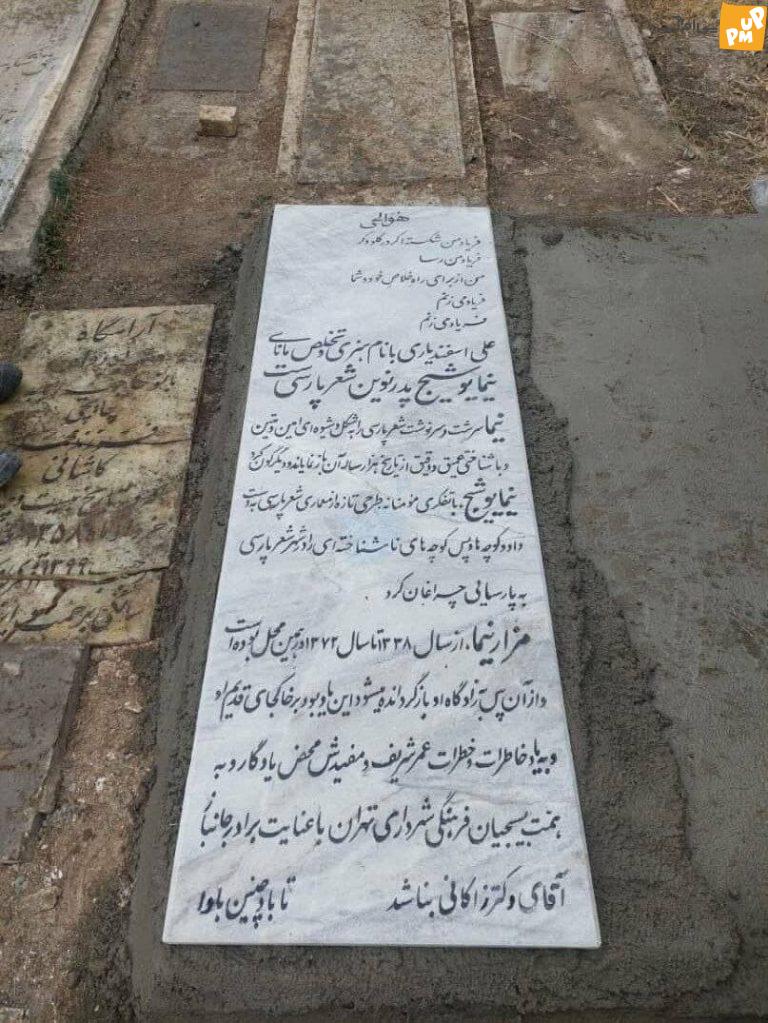 هوالحی
فریاد من شکسته اگر در گلو و گر
فریاد من رسا
من از برای راه خلاص خود و شما
فریاد می زنم
فریاد می زنم
علی اسفندیاری با نام هنری و تخلص با نامی
نیما یوشیج پدر نوین شعر پارسی ست
نیما سرشت و سرنوشت شعر پارسی را به شکل و شیوه ای امین و متین
و با شناختی عمیق و دقیق از تاریخ هزار ساله آن باز نمایاند و دیگرگون کرد
نیما یوشیج، با تفکری مؤمنانه طرحی تازه از معماری شعر پارسی به دست
داد و کوچه ها و پس کوچه های ناشناخته ای را در شهر شعر پارسی
به پارسایی چراغان کرد
مزار نیما، از سال ۱۳۳۸ تا سال ۱۳۷۲ در همین محل بوده است
و از آن پس به زادگاه او بازگردانده میشود این یادبود بر خاکجای قدیم او
و به یاد خاطرات و خطرات عمر شریف و مفیدش محض یادگار و به
همت بسیجیان فرهنگی شهرداری تهران با عنایت برادر جانباز
آقای دکتر زاکانی بنا شد تا باد چنین بادا
آرامگاه
چایچی
فرزند
کاشانی
۱۳۵۸
۱۳۹۹
UP
PM